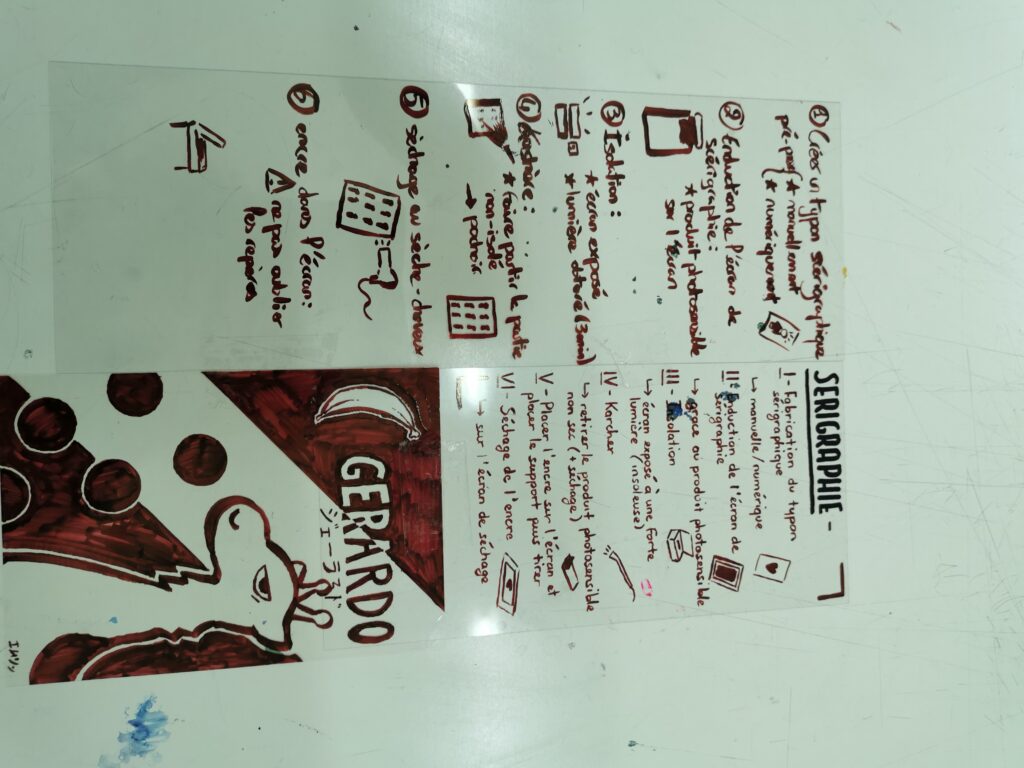 ① Créer un typon sérigraphique
pré-presse * manuellement
( * numériquement
② Enduction de l'écran de
sérigraphie :
* produit photosensible
sur l'écran
③ Isolation :
* écran exposé
* lumière (3min)
④ Karchère :
* faire partir la partie
non-isolé
→ pochoir
⑤ séchage au sèche-cheveux
⑥ encre dans l'écran :
⚠ ne pas oublier
les repères
SERIGRAPHIE -
I - Fabrication du typon
sérigraphique
↳ manuelle/numérique
II - Enduction de l'écran de
Sérigraphie
↳ grace au produit photosensible
III - Insolation
↳ écran exposé à une forte
lumière (insoleuse)
IV - Karcher
↳ retirer le produit photosensible
non sec (+ séchage)
V - Placer l'encre sur l'écran et
placer le support puis tirer
VI - Séchage de l'encre
↳ sur l'écran de séchage
GERARDO